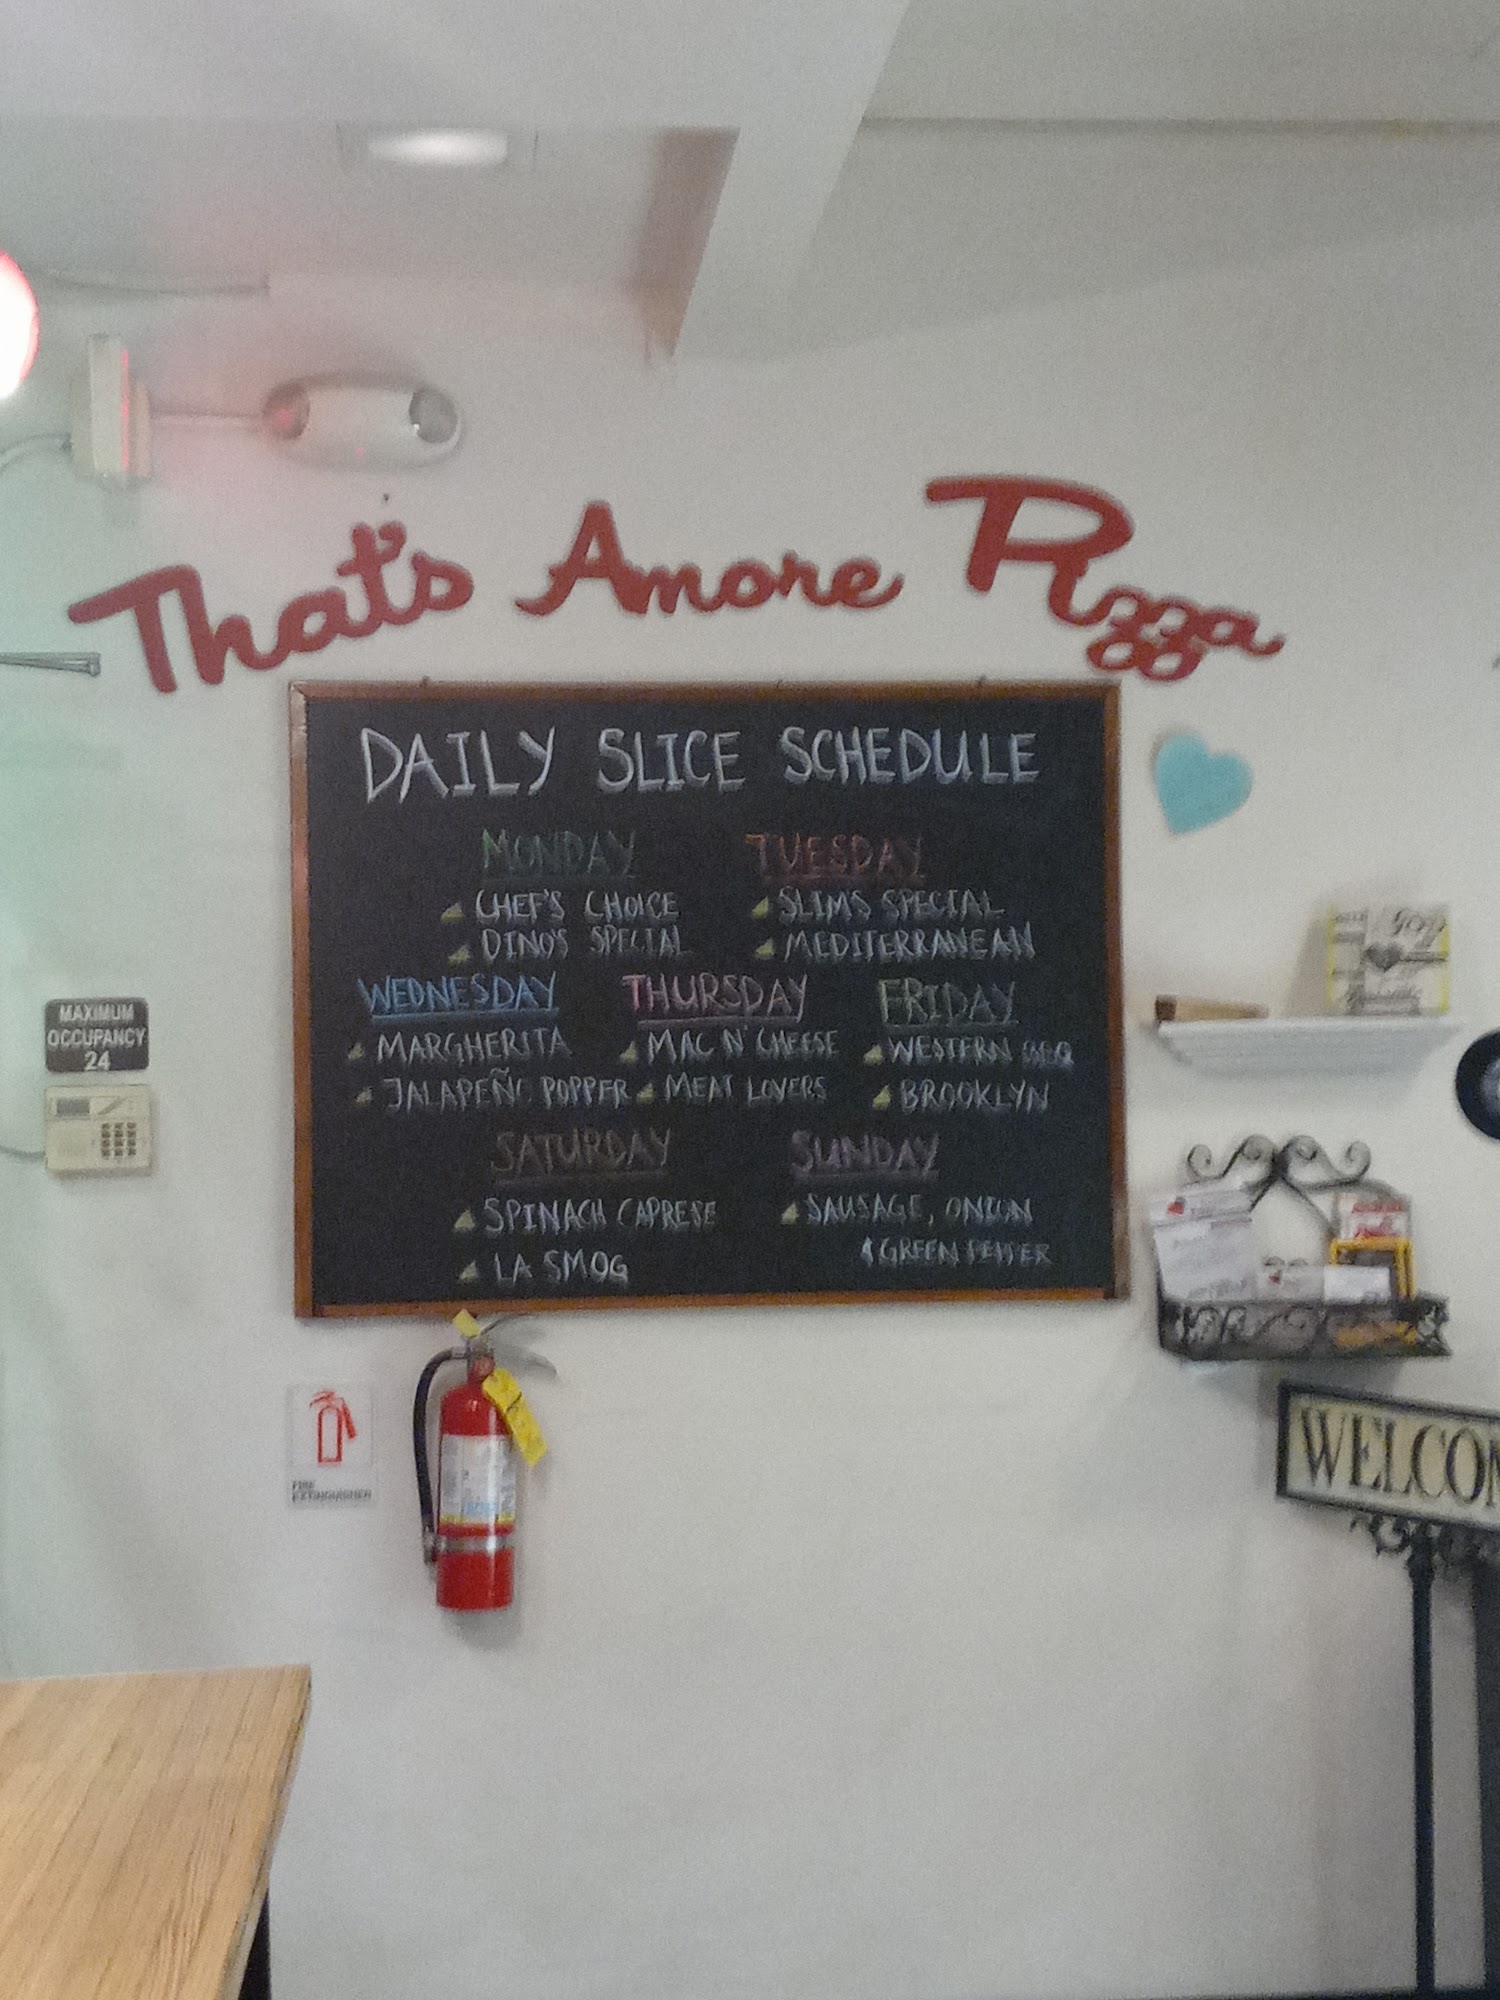 That's Amore Pizza
DAILY SLICE SCHEDULE
MONDAY
CHEF'S CHOICE
DINO'S SPECIAL
TUESDAY
SLIM'S SPECIAL
MEDITERRANEAN
WEDNESDAY
MARGHERITA
JALAPEÑO POPPER
THURSDAY
MAC N' CHEESE
MEAT LOVERS
FRIDAY
WESTERN BBQ
BROOKLYN
SATURDAY
SPINACH CAPRESE
LA SMOG
SUNDAY
SAUSAGE, ONION
& GREEN PEPPER
MAXIMUM
OCCUPANCY
24
FIRE
EXTINGUISHER
WELCOM